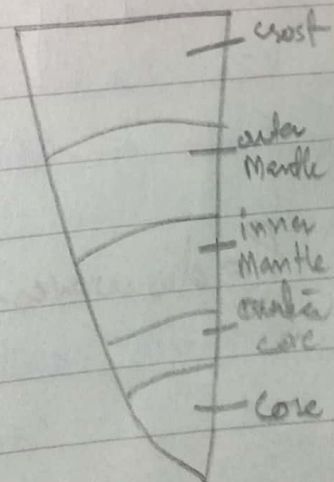 crost
outer
Mantle
inner
Mantle
core
Core